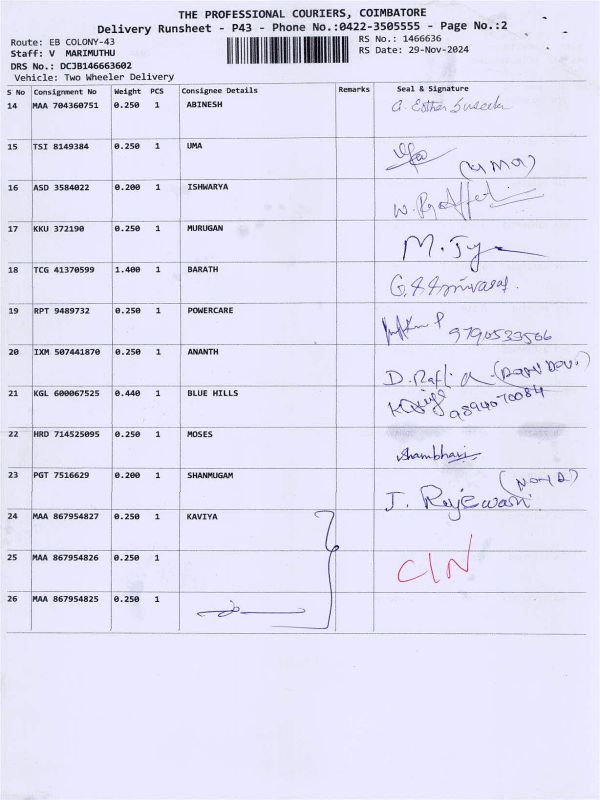 THE PROFESSIONAL COURIERS, COIMBATORE
Delivery Runsheet - P43 - Phone No.:0422-3505555 - Page No.:2
Route: EB COLONY-43 RS No.: 1466636
Staff: V MARIMUTHU RS Date: 29-Nov-2024
DRS No.: DCJB146663602
Vehicle: Two Wheeler Delivery
S No Consignment No Weight PCS Consignee Details Remarks Seal & Signature
14 MAA 704360751 0.250 1 ABINESH
15 TSI 8149384 0.250 1 UMA
(UMA)
16 ASD 3584022 0.200 1 ISHWARYA
17 KKU 372190 0.250 1 MURUGAN
18 TCG 41370599 1.400 1 BARATH
19 RPT 9489732 0.250 1 POWERCARE
9790533566
20 IXM 507441870 0.250 1 ANANTH
21 KGL 600067525 0.440 1 BLUE HILLS 9894070084
22 HRD 714525095 0.250 1 MOSES
Shambhavi
23 PGT 7516629 0.200 1 SHANMUGAM
24 MAA 867954827 0.250 1 KAVIYA
25 MAA 867954826 0.250 1 C/N
26 MAA 867954825 0.250 1